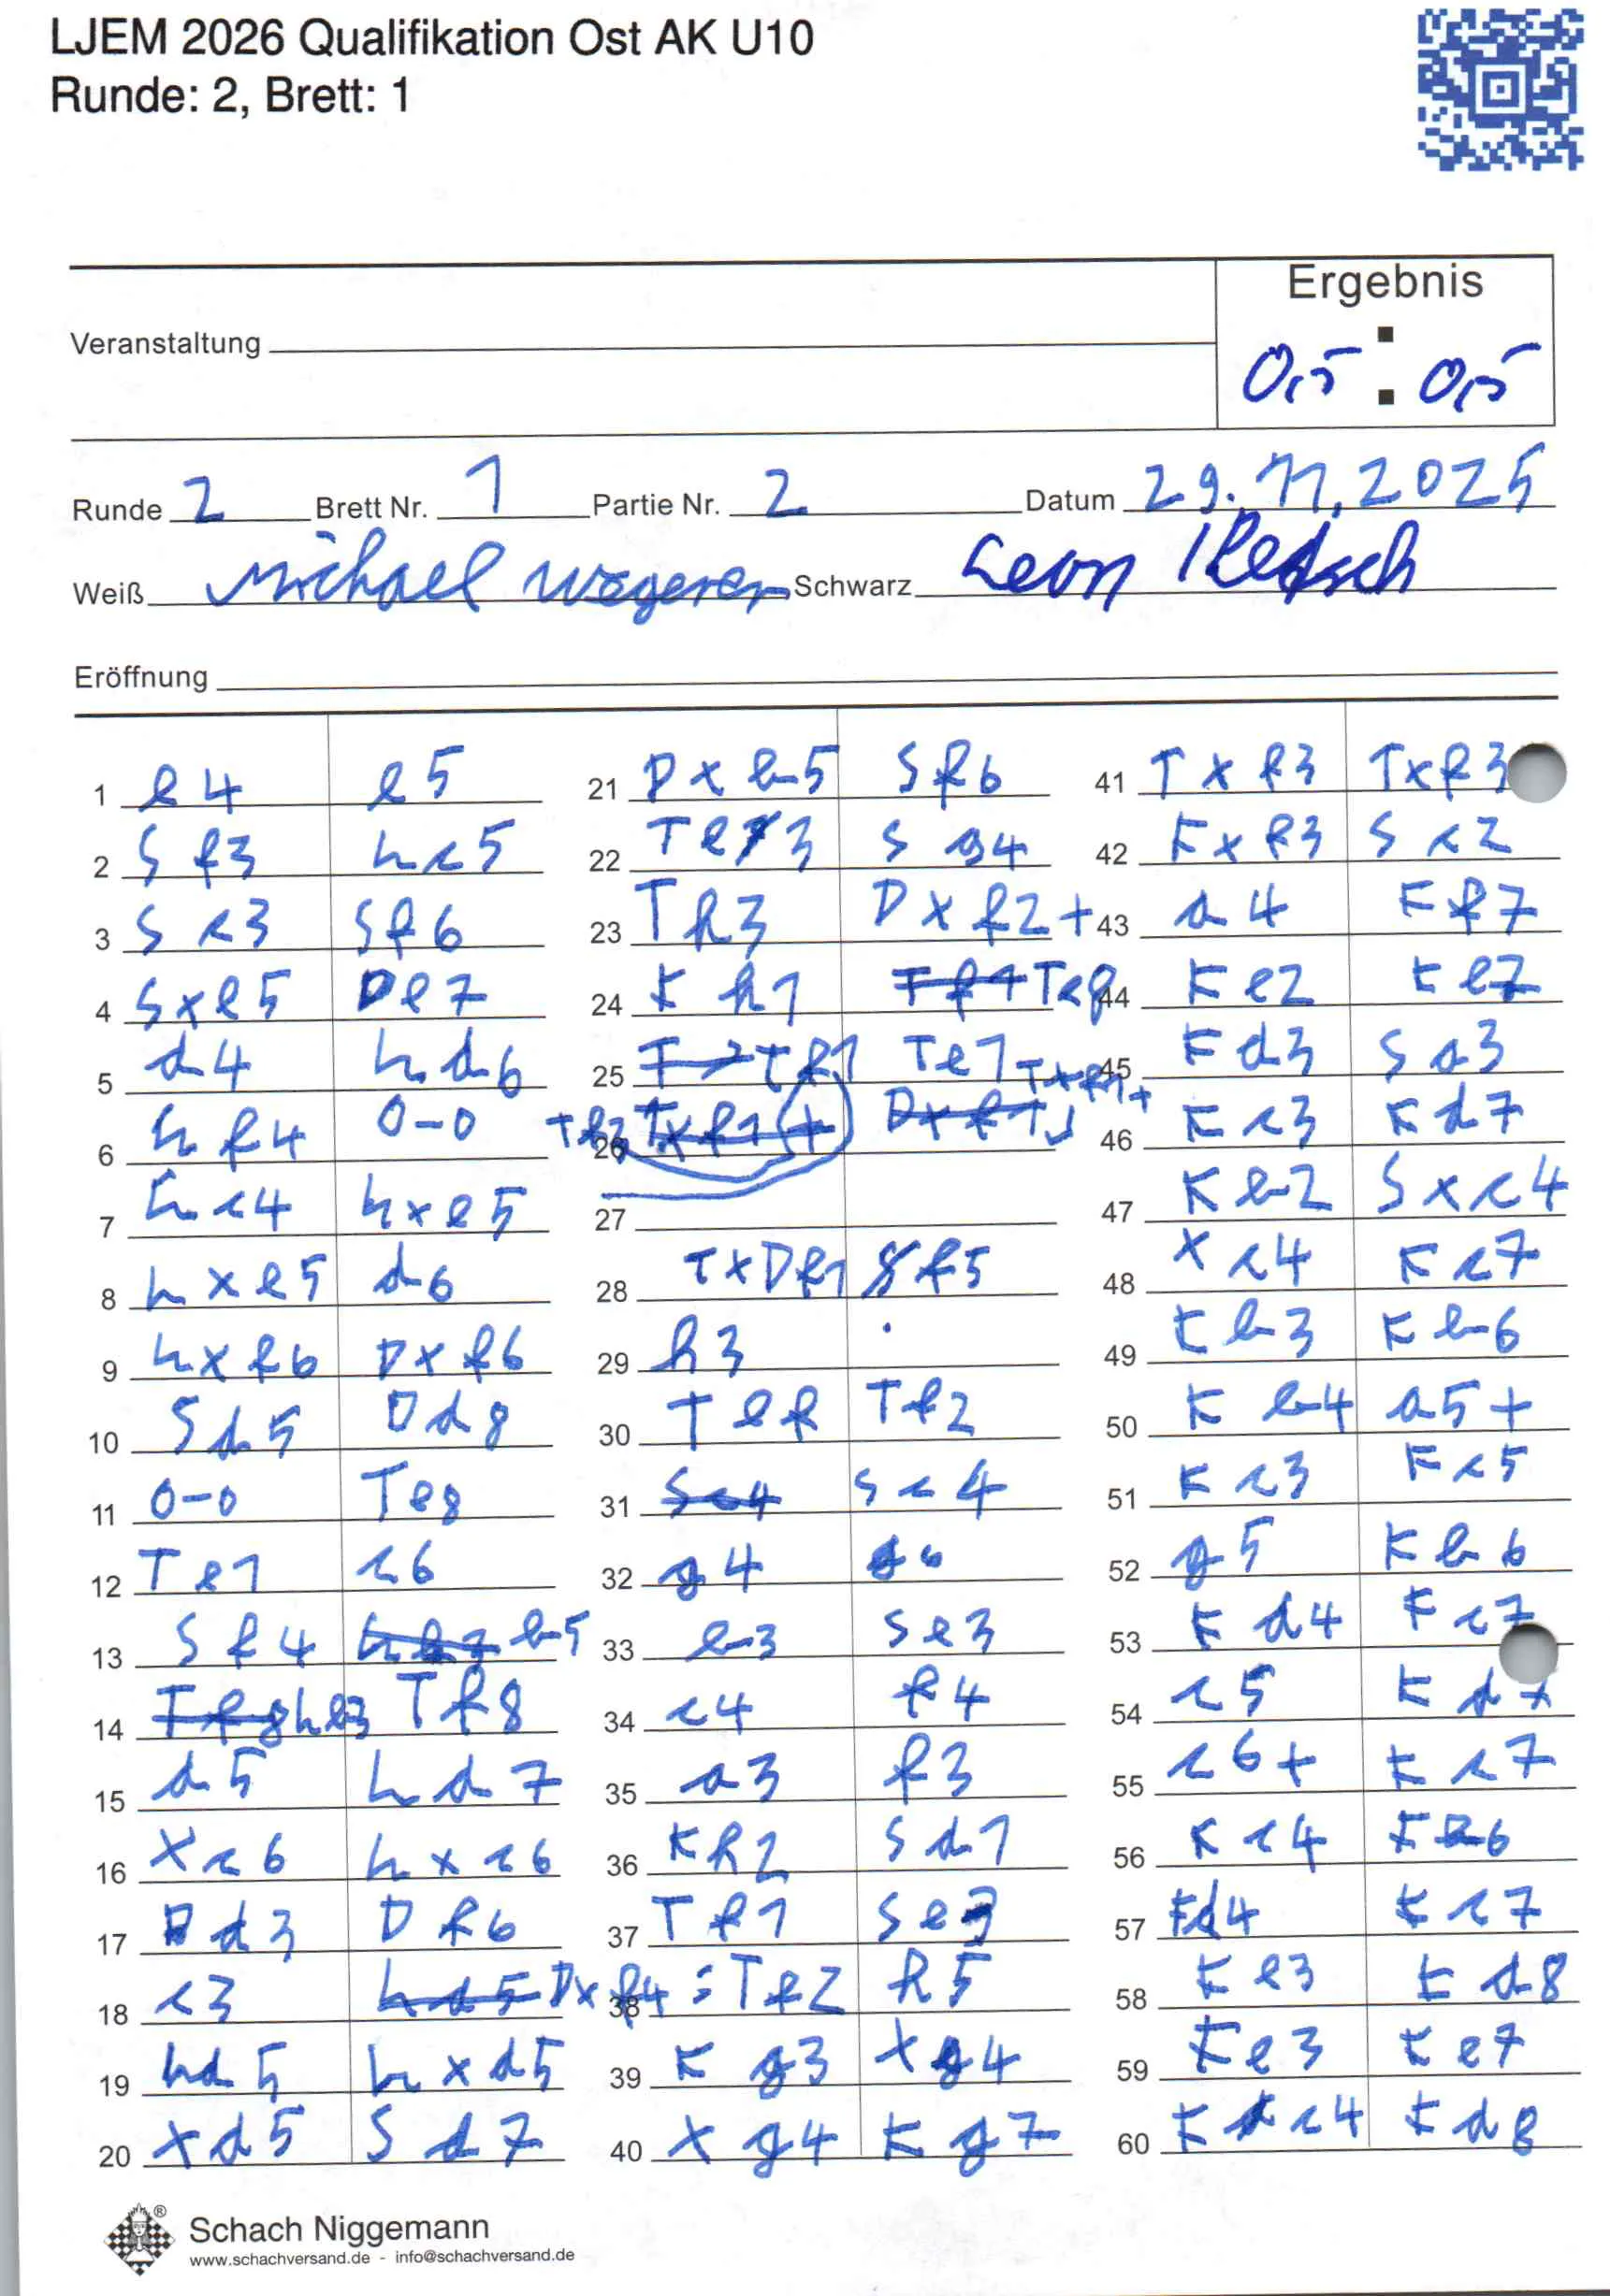 LJEM 2026 Qualifikation Ost AK U10
Runde: 2, Brett: 1
Ergebnis
Veranstaltung
0,5 : 0,5
Runde 2 Brett Nr. 1 Partie Nr. 2 Datum 29.11.2025
Weiß Michael Wegerer Schwarz Leon
Eröffnung
1 e4 e5
2 Sf3 Lc5
3 Sc3 Sf6
4 Sxe5 De7
5 d4 Ld6
6 Lf4 0-0
7 Lc4 Lxe5
8 Lxe5 d6
9 Lxf6 Dxf6
10 Sd5 Dd8
11 0-0 Te8
12 Te1 c6
13 Sf4 b5
14 Lb3 Tf8
15 d5 Ld7
16 xc6 Lxc6
17 Dd3 Df6
18 c3 Dxf4
19 Ld5 Lxd5
20 xd5 Sd7
21 Dxb5 Sf6
22 Te3 Sg4
23 Th3 Dxf2+
24 Kh1 Te8
25 Tf1 Te1
26 Txf1+
27
28 TxDf1 Sf5
29 h3
30 Tef Tf2
31 Sc4 Sc4
32 g4 g6
33 b3 Se3
34 c4 f4
35 a3 f3
36 Kh2 Sd1
37 Tf1 Se3
38 Tf2 h5
39 Kg3 xg4
40 xg4 Kg7
41 Txf3 Txf3
42 Kxf3 Sc2
43 a4 Kf7
44 Ke2 Ke7
45 Kd3 Sa3
46 Kc3 Kd7
47 Kb2 Sxc4
48 xc4 Kc7
49 Kb3 Kb6
50 Kb4 a5+
51 Kc3 Kc5
52 g5 Kb6
53 Kd4 Kc7
54 c5 Kd7
55 c6+ Kc7
56 Kc4 Kb6
57 Kd4 Kc7
58 Ke3 Kd8
59 Ke3 Ke7
60 Kc4 Kd8
Schach Niggemann
www.schachversand.de - info@schachversand.de